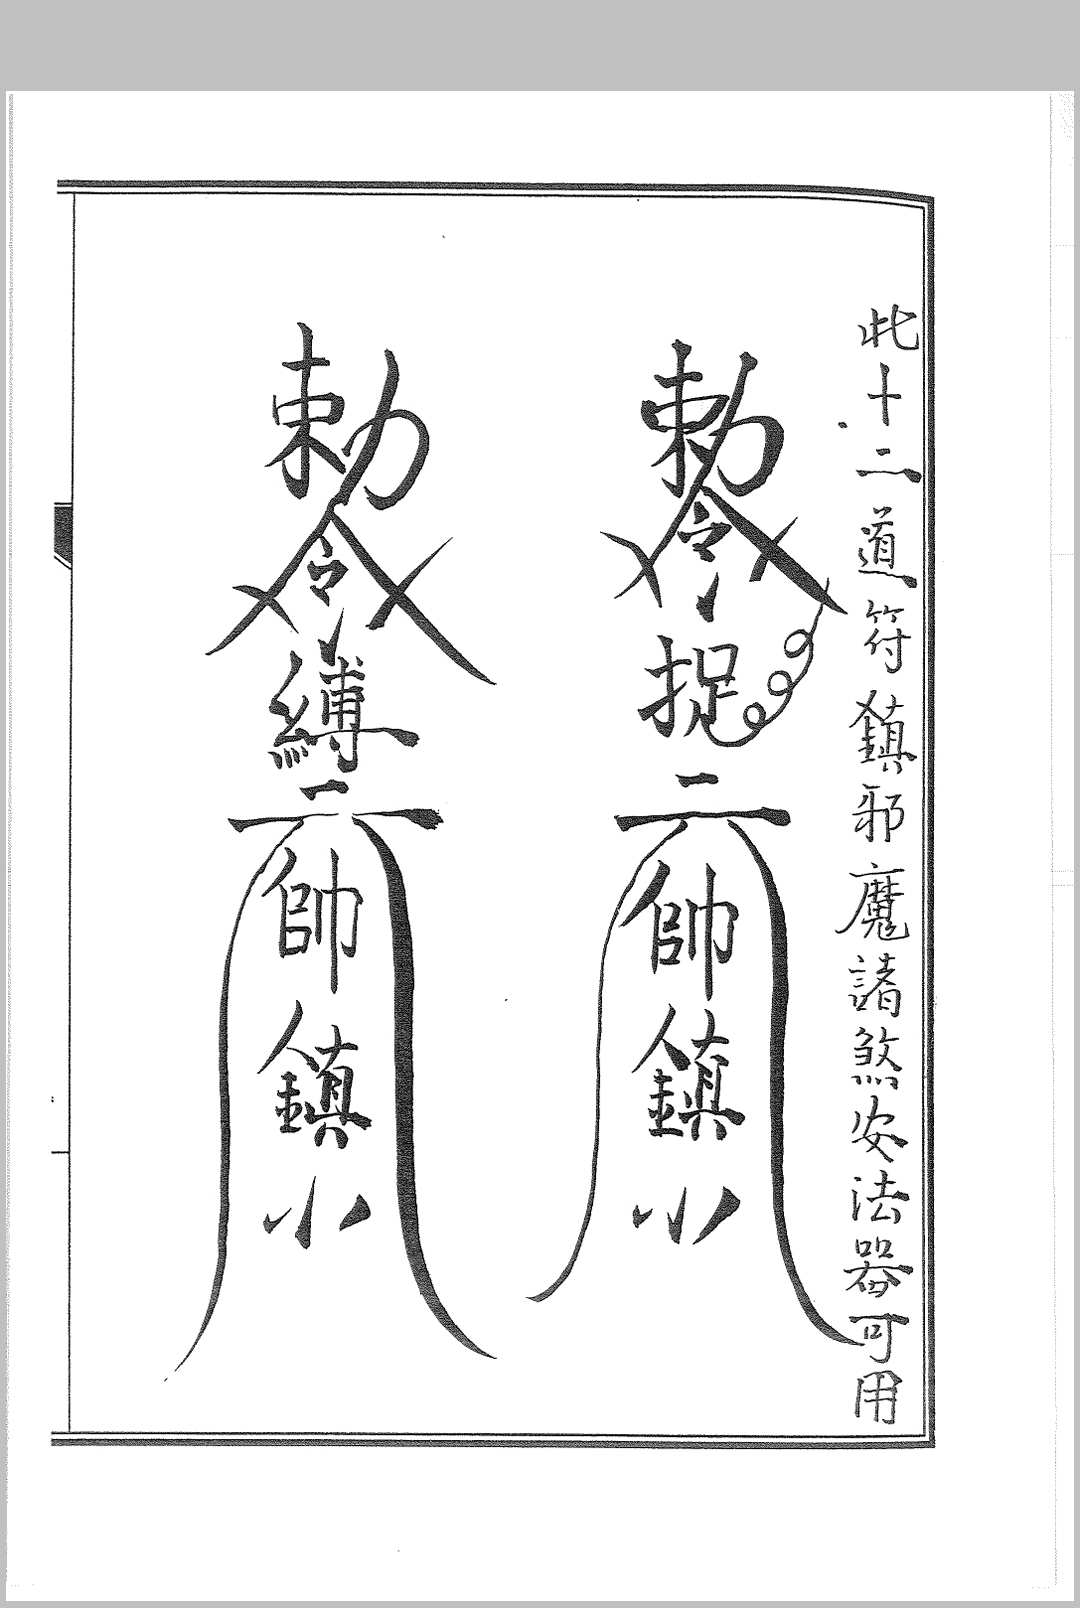 此十二道符鎮邪魔諸煞安法器可用
勅令捉二帥鎮小
勅令縛二帥鎮小